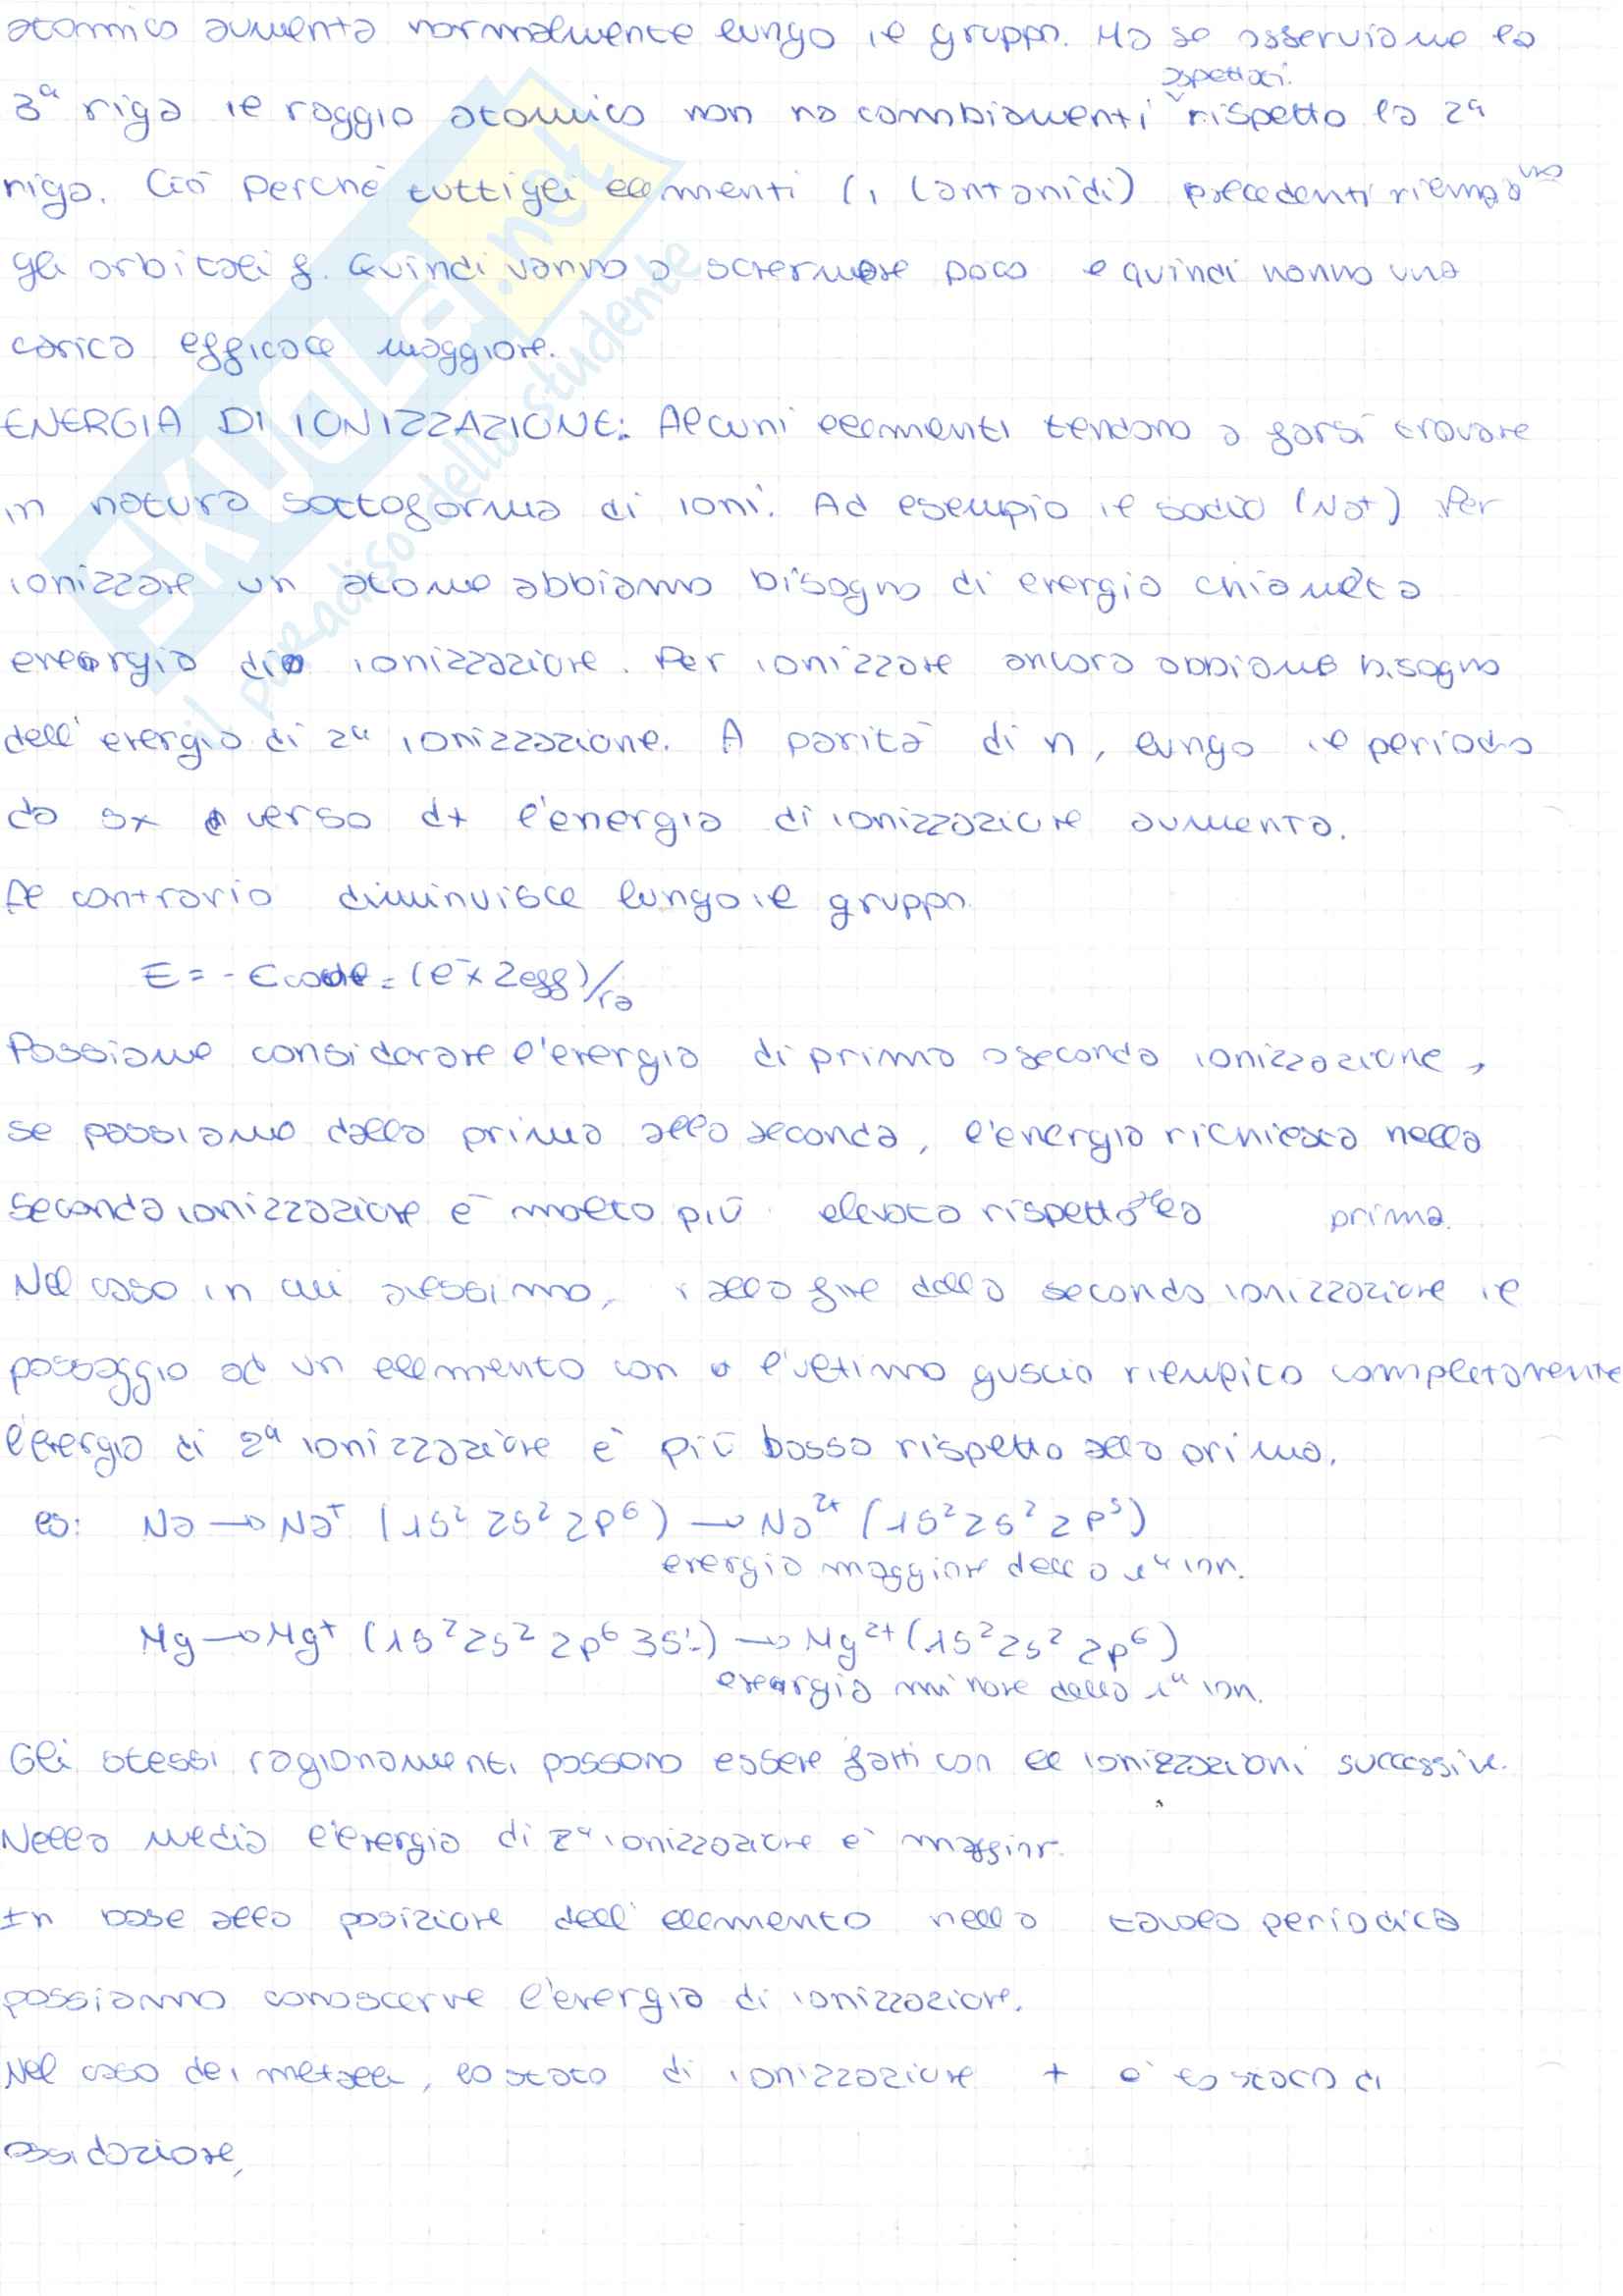 atomico aumenta normalmente lungo il gruppo. Ma se osserviamo la
aspettati.
3ª riga il raggio atomico non ha cambiamenti rispetto la 2ª
riga. Ciò perché tutti gli elementi (i lantanidi) precedenti riempono
gli orbitali f. Quindi vanno a schermare poco e quindi hanno una
carica efficace maggiore.
ENERGIA DI IONIZZAZIONE: Alcuni elementi tendono a farsi trovare
in natura sottoforma di ioni. Ad esempio il sodio (Na+) Per
ionizzare un atomo abbiamo bisogno di energia chiamata
energia di ionizzazione. Per ionizzare ancora abbiamo bisogno
dell'energia di 2ª ionizzazione. A parità di n, lungo il periodo
da sx verso dx l'energia di ionizzazione aumenta.
Al contrario diminuisce lungo il gruppo.
E = - Ecoul = (e⁻ x Zeff)/ra
Possiamo considerare l'energia di prima o seconda ionizzazione,
se passiamo dalla prima alla seconda, l'energia richiesta nella
seconda ionizzazione è molto più elevata rispetto alla prima.
Nel caso in cui avessimo, alla fine della seconda ionizzazione il
passaggio ad un elemento con l'ultimo guscio riempito completamente
l'energia di 2ª ionizzazione è più bassa rispetto alla prima.
es: Na → Na⁺ (1s² 2s² 2p⁶) → Na²⁺ (1s² 2s² 2p⁵)
energia maggiore della 1ª ion.
Mg → Mg⁺ (1s² 2s² 2p⁶ 3s¹) → Mg²⁺ (1s² 2s² 2p⁶)
energia minore della 1ª ion.
Gli stessi ragionamenti possono essere fatti con le ionizzazioni successive.
Nella media l'energia di 2ª ionizzazione è maggiore.
In base alla posizione dell'elemento nella tavola periodica
possiamo conoscerne l'energia di ionizzazione.
Nel caso dei metalli, lo stato di ionizzazione + è lo stato di
ossidazione,
SKUOLA.net
il paradiso dello studente